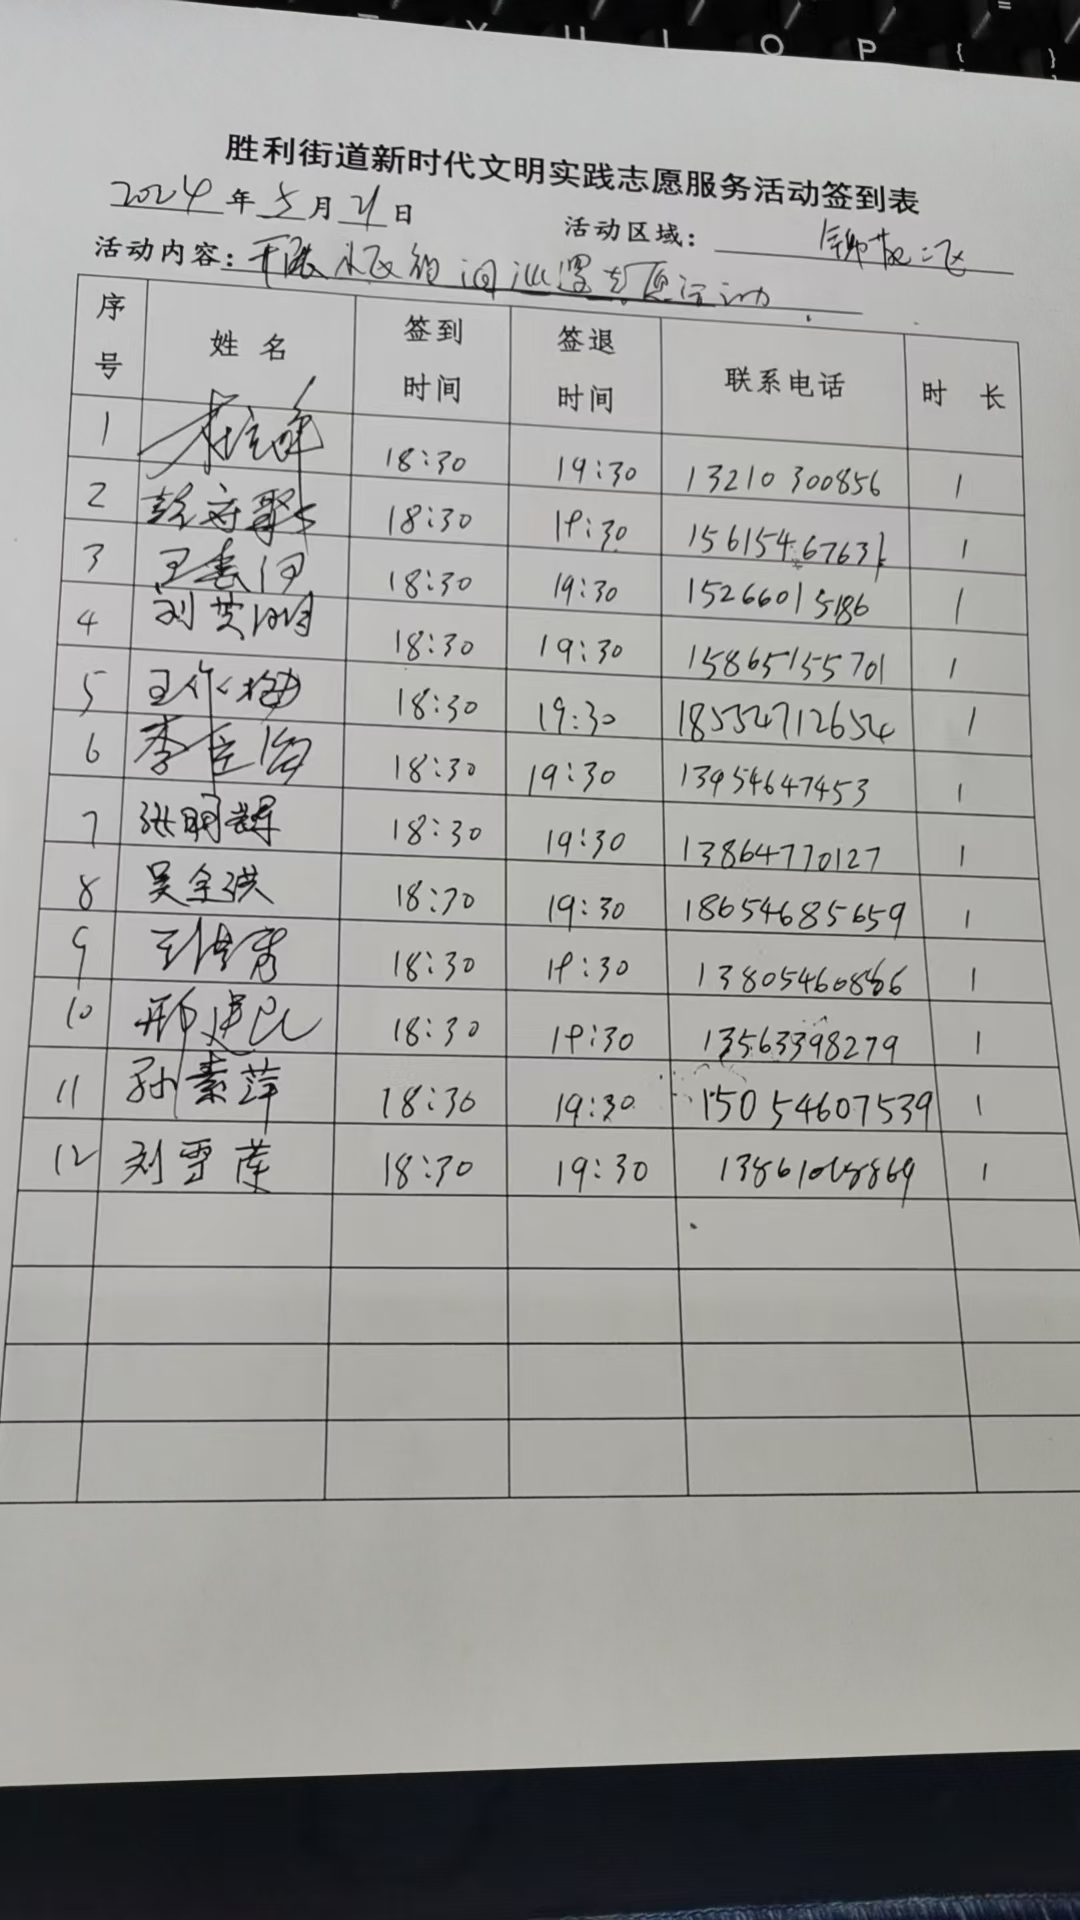 胜利街道新时代文明实践志愿服务活动签到表
2024年5月21日 活动区域：锦苑二区
活动内容：开展 夜间巡逻志愿活动
序号 姓名 签到时间 签退时间 联系电话 时 长
1 18:30 19:30 13210300856 1
2 18:30 19:30 15615467631 1
3 18:30 19:30 15266015186 1
4 刘英明 18:30 19:30 15865155701 1
5 18:30 19:30 18554712654 1
6 李 18:30 19:30 13954647453 1
7 张明 18:30 19:30 13864770127 1
8 吴全洪 18:30 19:30 18654685659 1
9 18:30 19:30 1 1
10 邢建民 18:30 19:30 13563398279 1
11 孙素萍 18:30 19:30 15054607539 1
12 刘雪莲 18:30 19:30 1